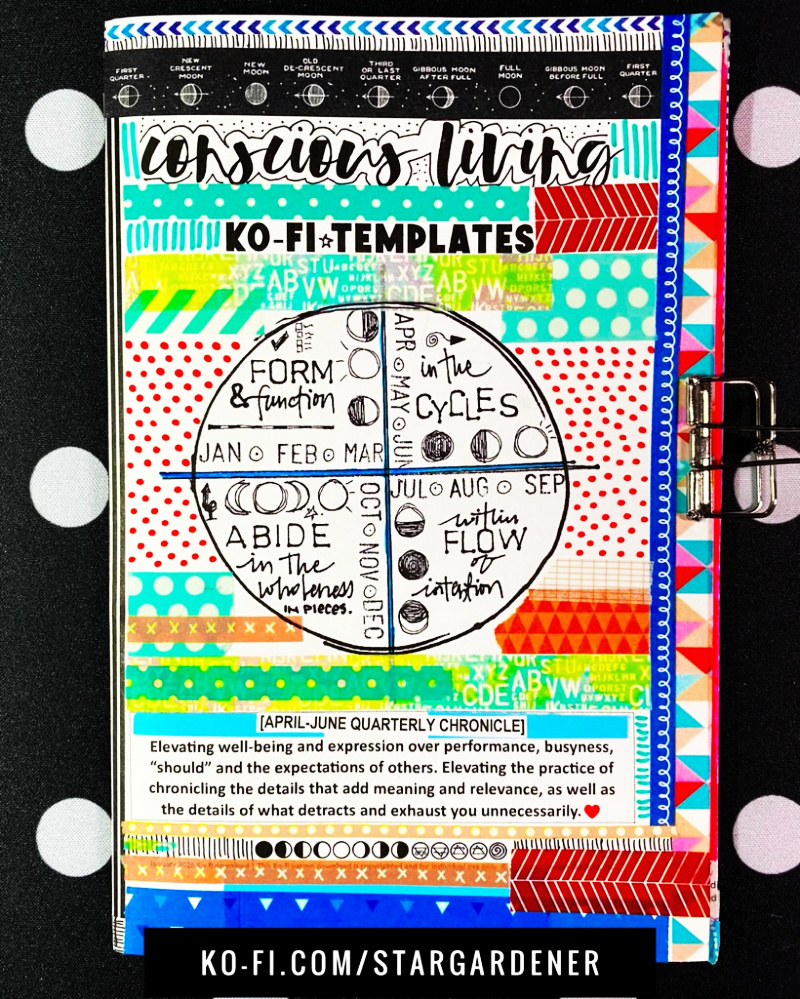 FIRST QUARTER
NEW CRESCENT MOON
NEW MOON
OLD DE-CRESCENT MOON
THIRD OR LAST QUARTER
GIBBOUS MOON AFTER FULL
FULL MOON
GIBBOUS MOON BEFORE FULL
FIRST QUARTER
conscious living
KO-FI☆TEMPLATES
FORM
& function
JAN ⊙ FEB ⊙ MAR
APR ⊙ MAY ⊙ JUN
in the
CYCLES
JUL ⊙ AUG ⊙ SEP
within
FLOW
of
intention
OCT ⊙ NOV ⊙ DEC
ABIDE
in the
wholeness
IN PIECES.
[APRIL-JUNE QUARTERLY CHRONICLE]
Elevating well-being and expression over performance, busyness,
“should” and the expectations of others. Elevating the practice of
chronicling the details that add meaning and relevance, as well as
the details of what detracts and exhaust you unnecessarily.
KO-FI.COM/STARGARDENER